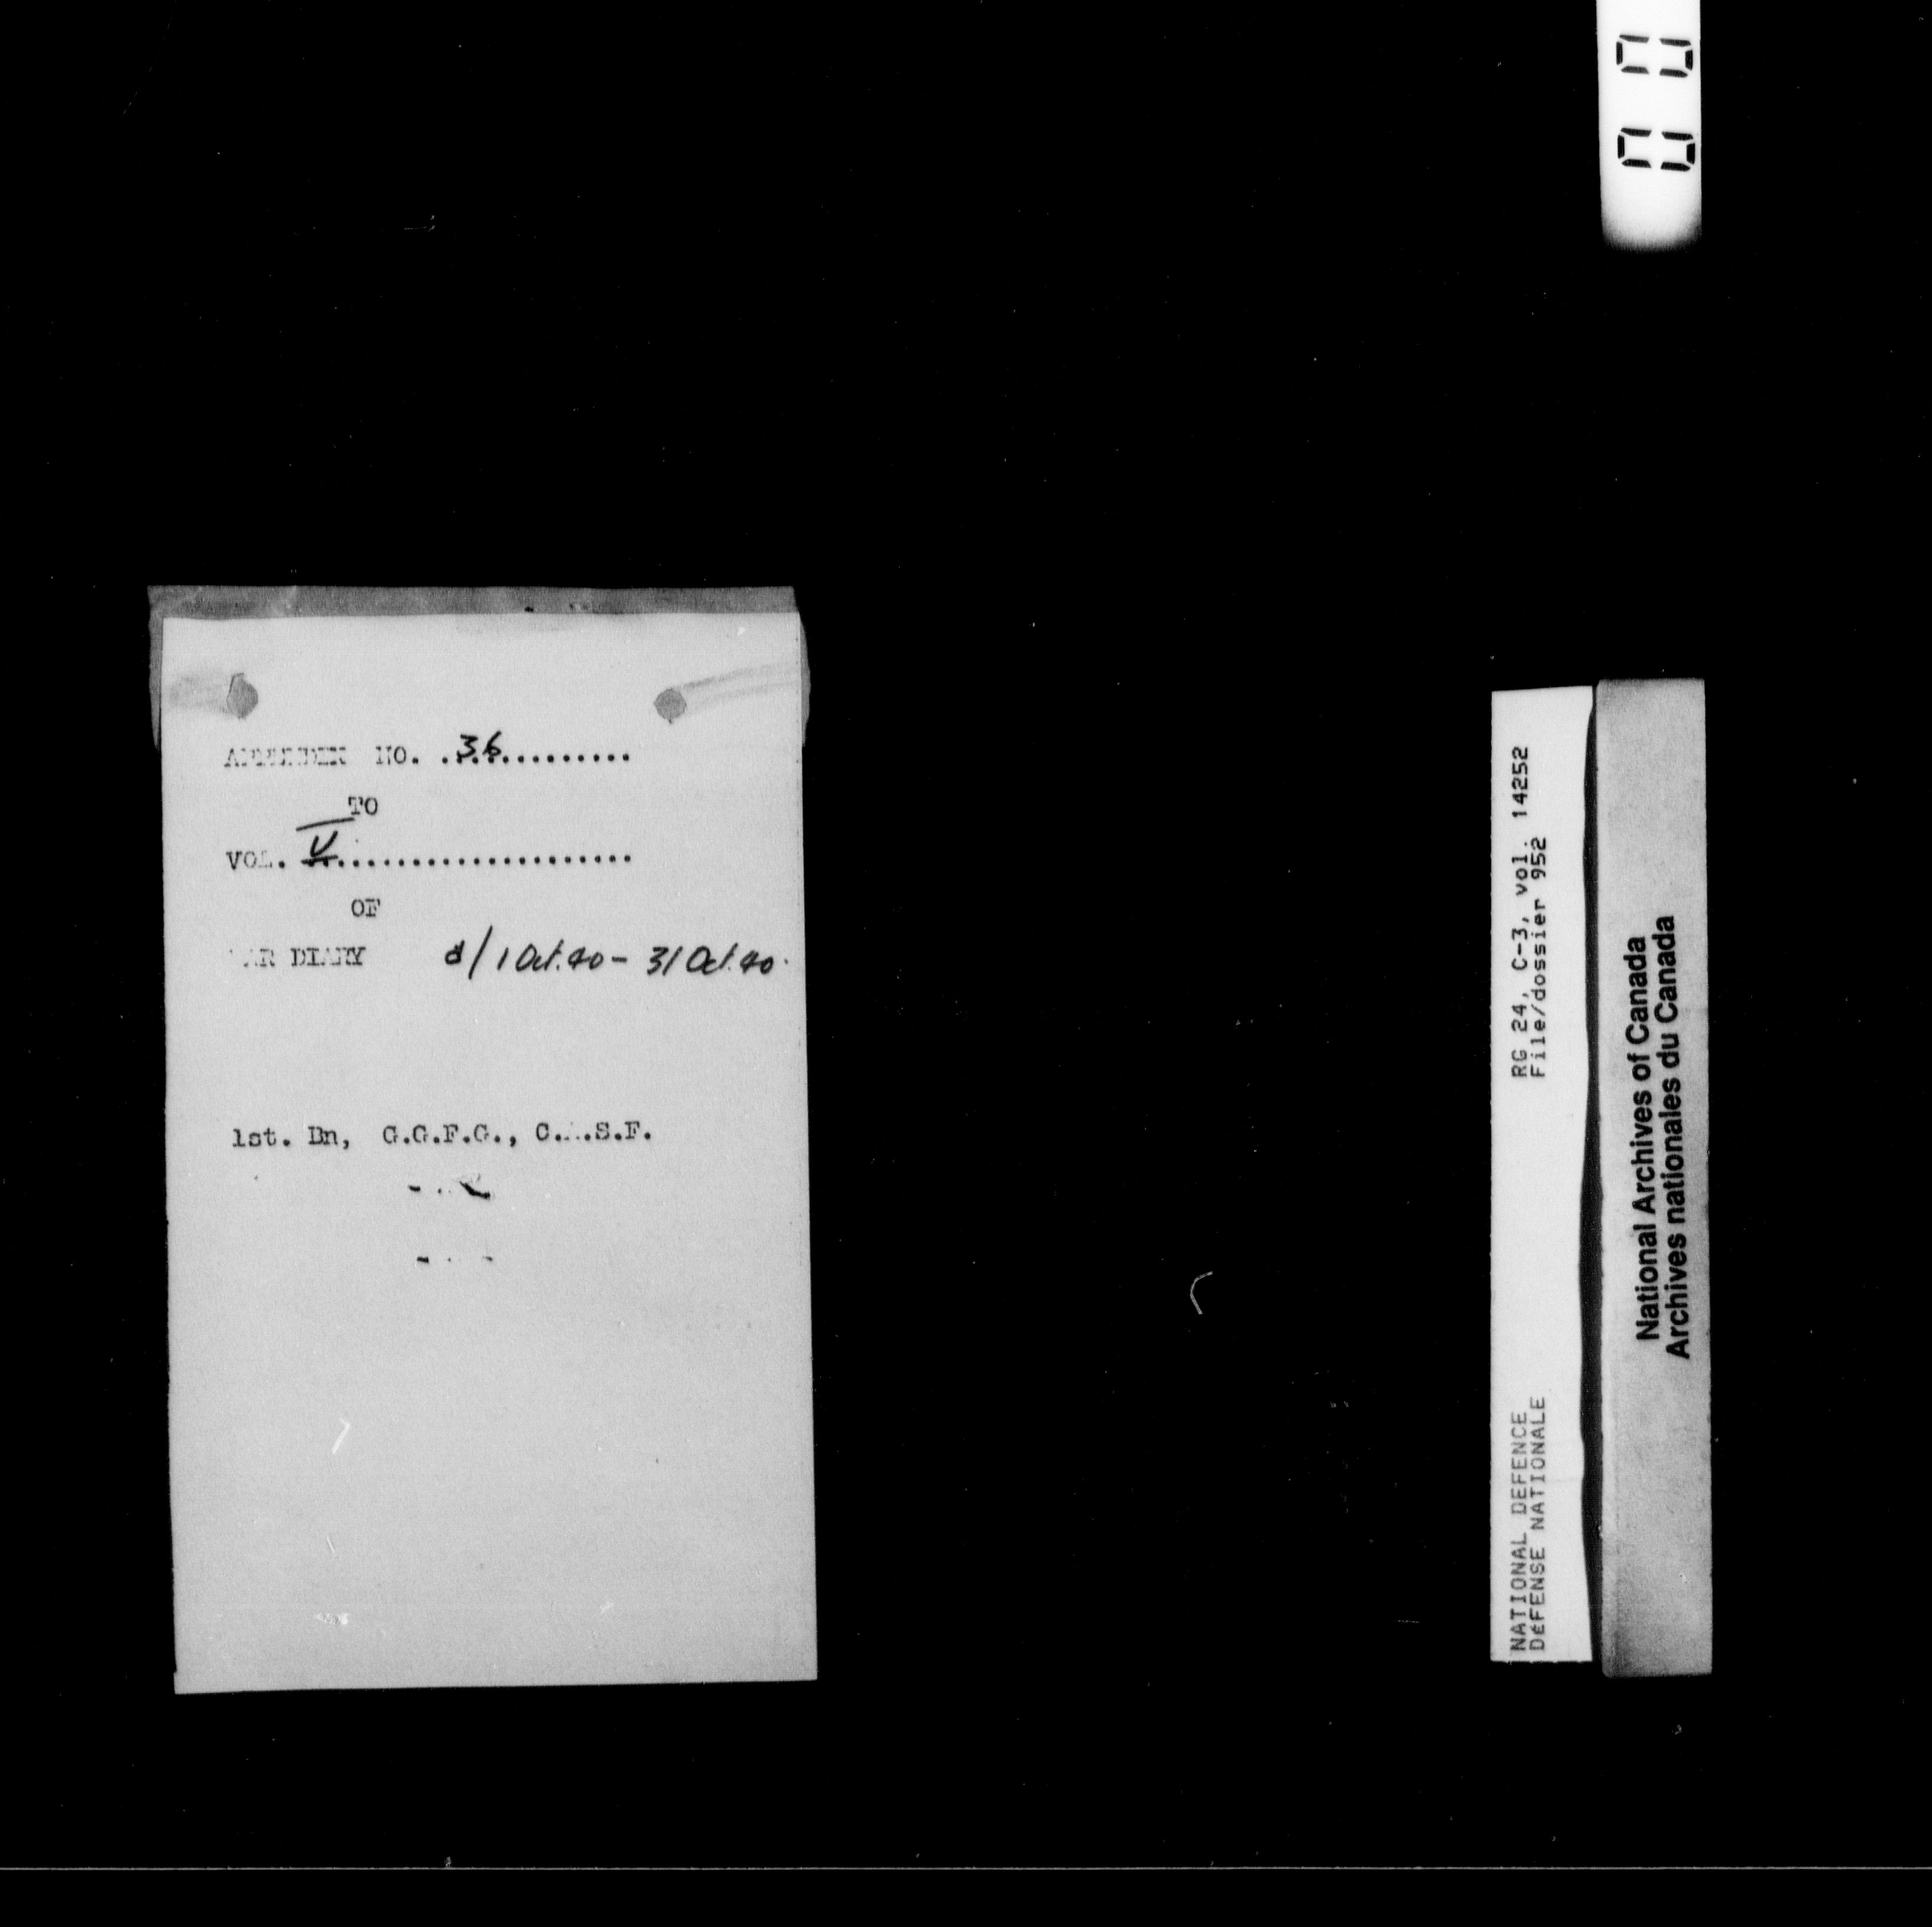 APPENDIX NO. ..36...........
TO
VOL. V......................
OF
WAR DIARY d/1 Oct.40 - 31 Oct.40.
1st. Bn, G.G.F.G., C.A.S.F.
RG 24, C-3, vol. 14252
File/dossier 952
NATIONAL DEFENCE
DÉFENSE NATIONALE
National Archives of Canada
Archives nationales du Canada